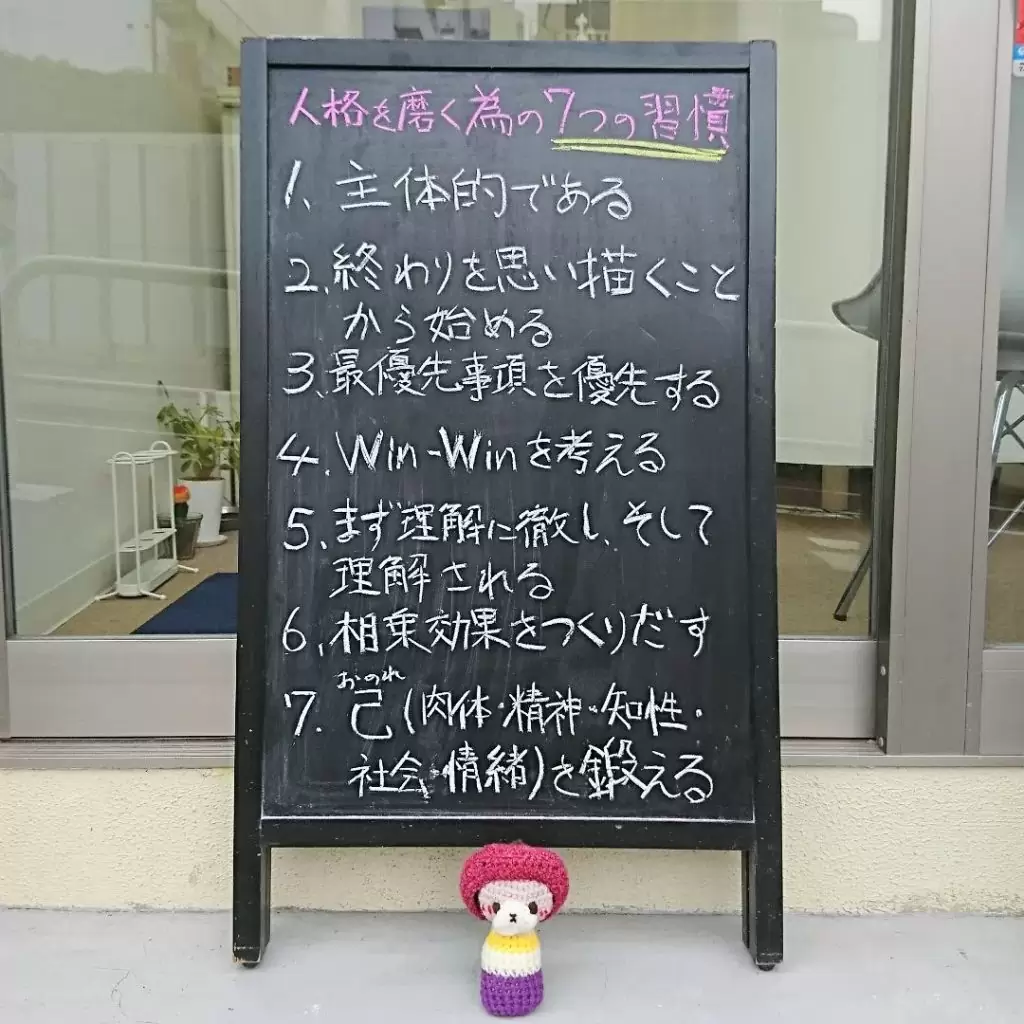 人格を磨く為の7つの習慣
1、主体的である
2、終わりを思い描くこと
から始める
3、最優先事項を優先する
4、Win-Winを考える
5、まず理解に徹し、そして
理解される
6、相乗効果をつくりだす
おのれ
7、己(肉体・精神・知性・
社会・情緒)を鍛える